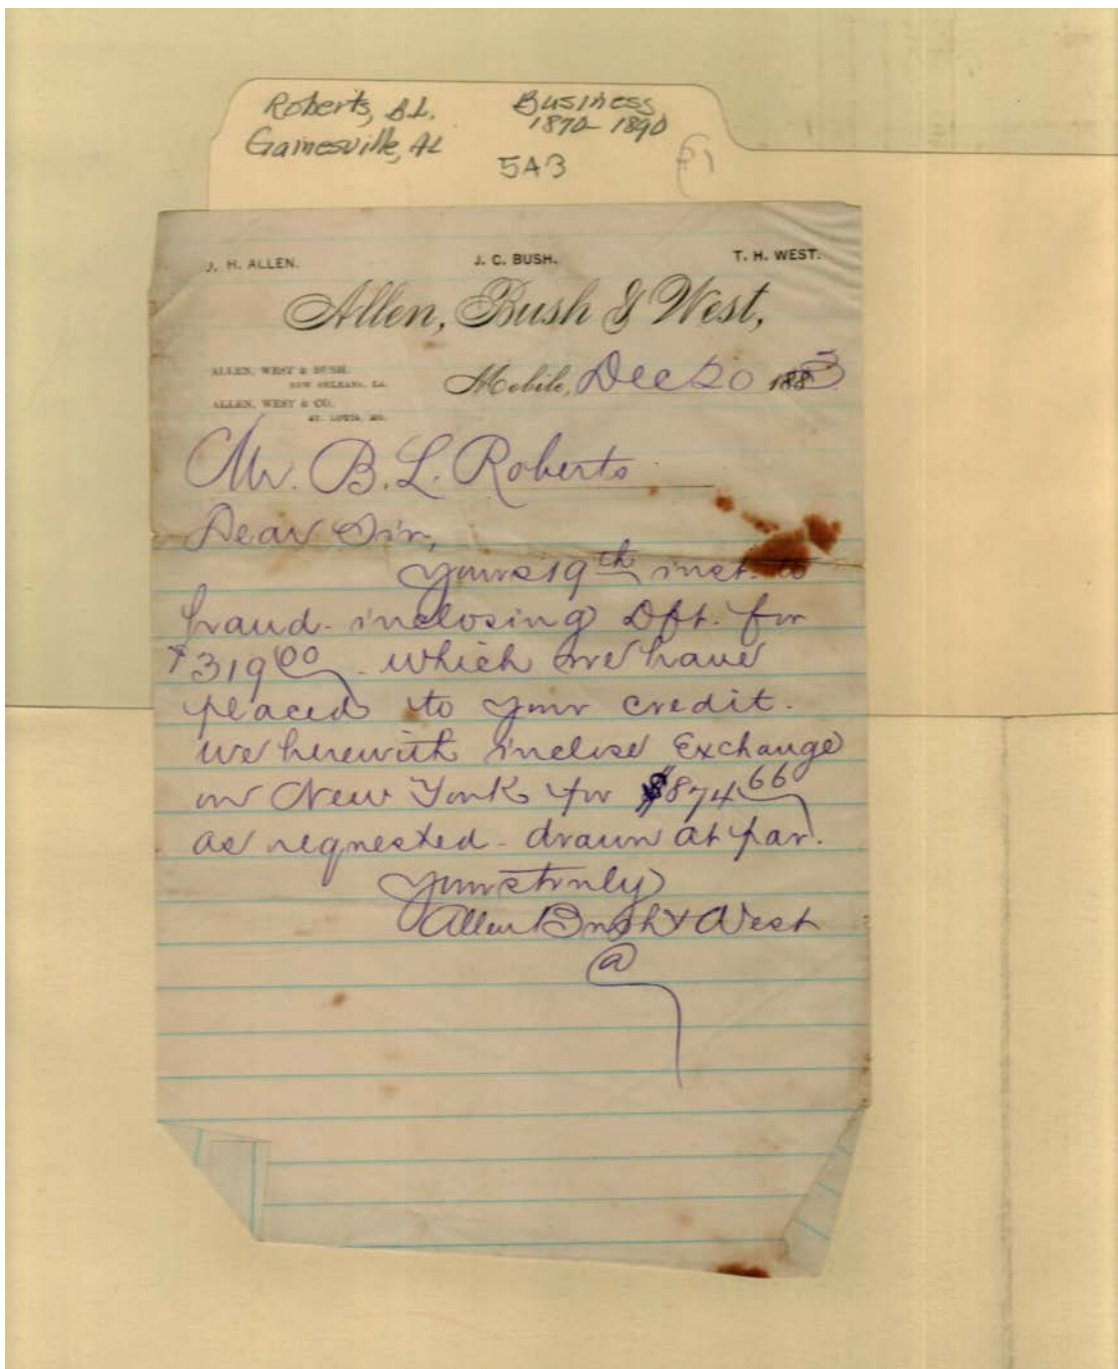 Roberts, B.L. Business
Gainesville, AL 1870-1890
5A3
J. H. ALLEN. J. C. BUSH. T. H. WEST.
Allen, Bush & West,
ALLEN, WEST & BUSH.
NEW ORLEANS, LA.
ALLEN, WEST & CO.
ST. LOUIS, MO.
Mobile, Dec 20 188
Mr. B. L. Roberts
Dear Sir,
Yours 19th inst. to
hand. inclosing Dft. for
$319 00 which we have
placed to your credit.
We herewith inclose Exchange
on New York for $874 66
as requested - drawn at par.
Yours truly
Allen Bush & West
@